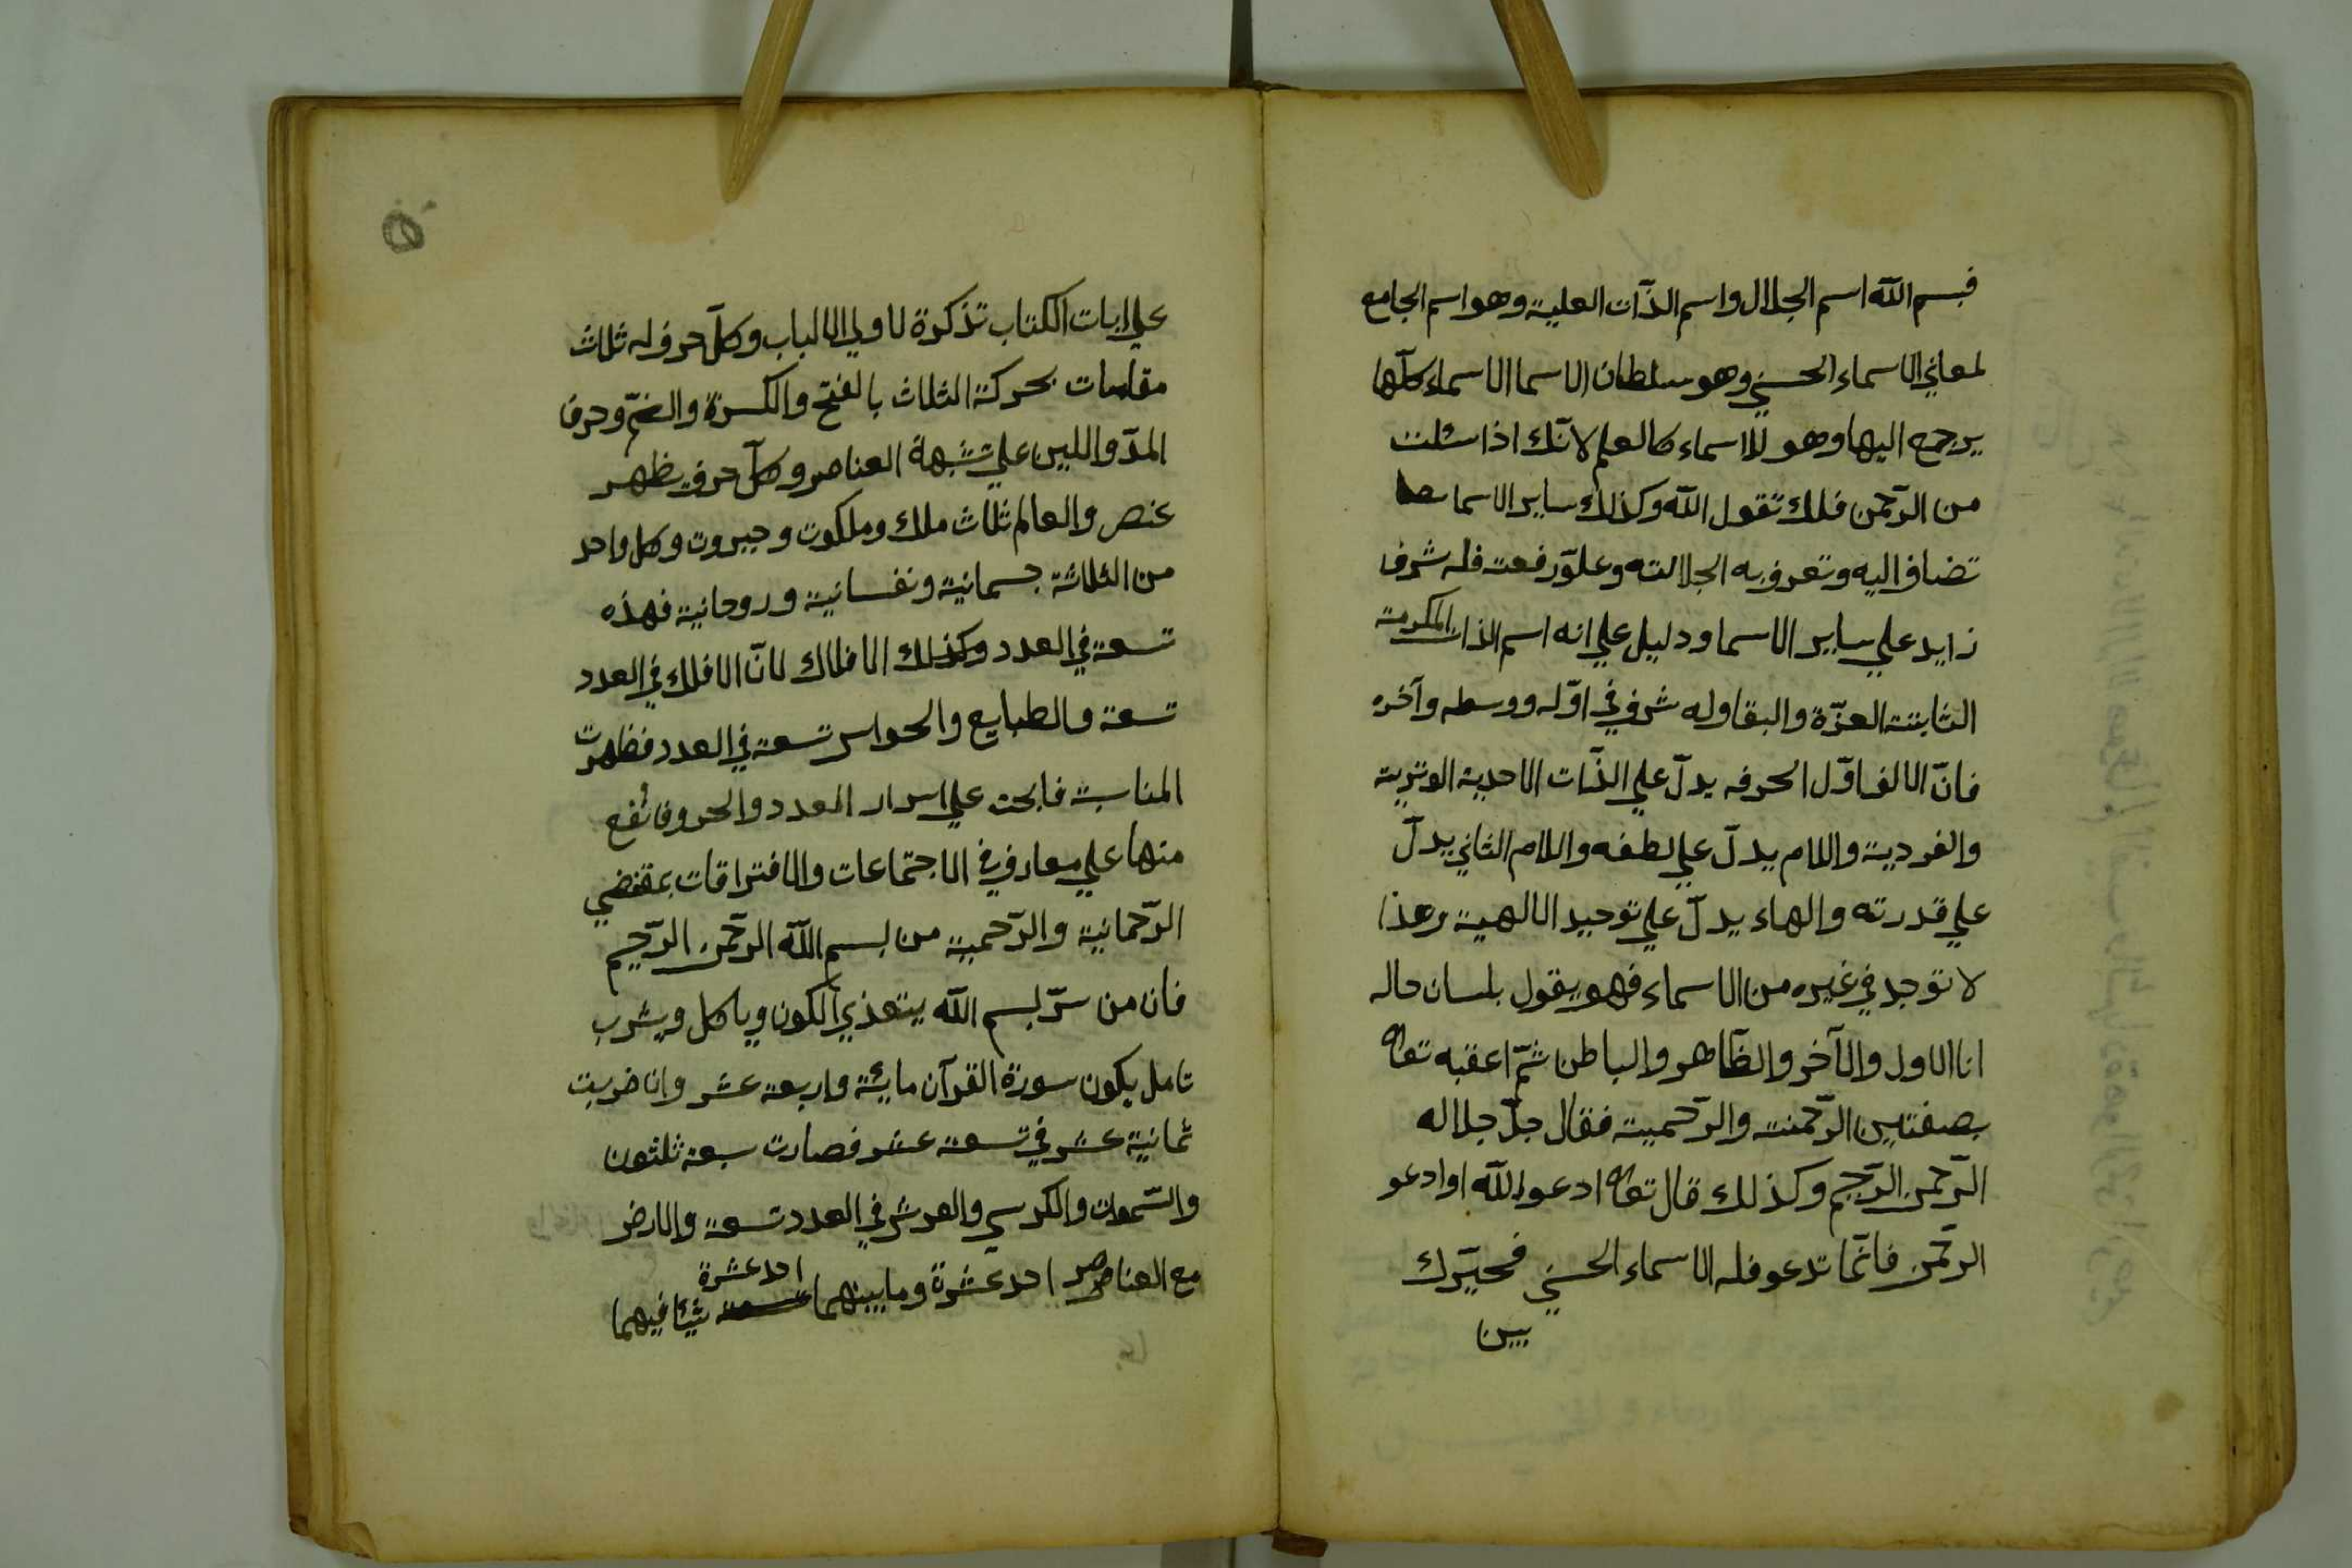 فبسم الله اسم الجلال واسم الذّات العلية وهو اسم الجامع
لمعاني الاسماء الحسني وهو سلطان الاسما الاسماء كلّها
يرجع اليها وهو للاسماء كالعلم لانّك اذا سئلت
من الرّحمن فلك تقول الله وكذلك ساير الاسما
تضاف اليه وتعرف به الجلالته وعلوّ رفعت فله شرف
زايد علي ساير الاسما ودليل علي انه اسم الذات المكرمة
الثابتة العزّة والبقا وله شرف في اوّله ووسطه وآخره
فانّ الالف اوّل الحرفه يدلّ علي الذّات الاحدية الوترية
والفردية واللام يدلّ علي لطفه واللام الثاني يدلّ
علي قدرته والهاء يدلّ علي توحيد الالهية وهذا
لا توجد في غيره من الاسماء فهو يقول بلسان حاله
انا الاول والآخر والظّاهر والباطن ثمّ اعقبه تعالى
بصفتين الرّحمنت والرّحميية فقال جلّ جلاله
الرّحمن الرّحيم وكذلك قال تعالى ادعو الله او ادعو
الرّحمن فانّما تدعو فله الاسماء الحسني فحيّرك
بين
علي ايات الكتاب تذكرة لاولي الالباب وكلّ حرف له ثلاث
مقامات بحركة الثلاث بالفتح والكسرة والضمّ وحرف
المدّ واللين علي تشبهة العناصر وكلّ حرف يظهر
عنصر والعالم ثلاث ملك وملكوت وجبروت وكل واحد
من الثلاثة جسمانية ونفسانية وروحانية فهذه
تسعة في العدد وكذلك الافلاك لانّ الافلك في العدد
تسعة والطبايع والحواس تسعة في العدد فظهرت
المناسبة فابحث علي اسرار العدد والحروف تقع
منها علي معارف في الاجتماعات والافتراقات بمقتضي
الرّحمانية والرّحمية من بسم الله الرّحمن الرّحيم
فان من سرّ بسم الله يتغذي الكون وياكل ويشرب
تامل يكون سورة القرآن مايئة واربعة عشر وان ضربت
ثمانية عشر في تسعة عشر فصارت سبعة ثلثون
والسّموات والكرسي والعرش في العدد تسعة والارض
مع العناصر احد عشرة وما بينهما احد عشرة شيئا فيهما